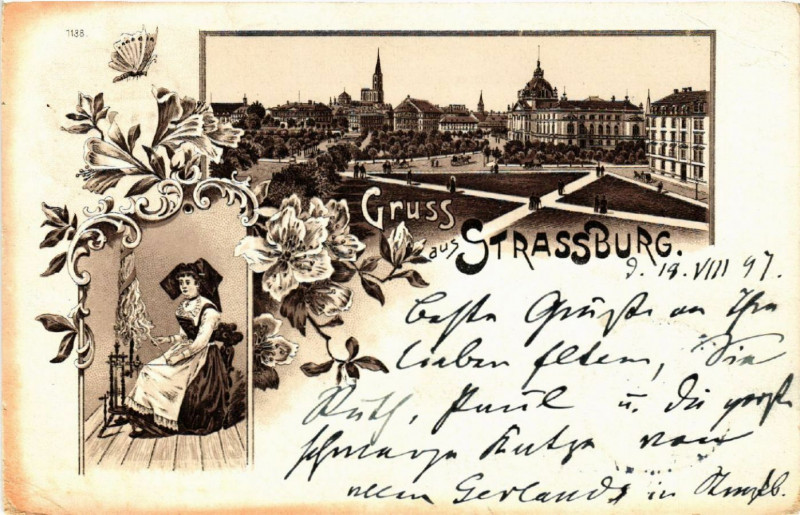 1188.
Gruss
aus STRASSBURG.
d. 18. VIII 97.
beste Grüße an Ihre
lieben Eltern, Sie
Ruth, Paul u. die große
schwarze Katze von
allen Gerlands in